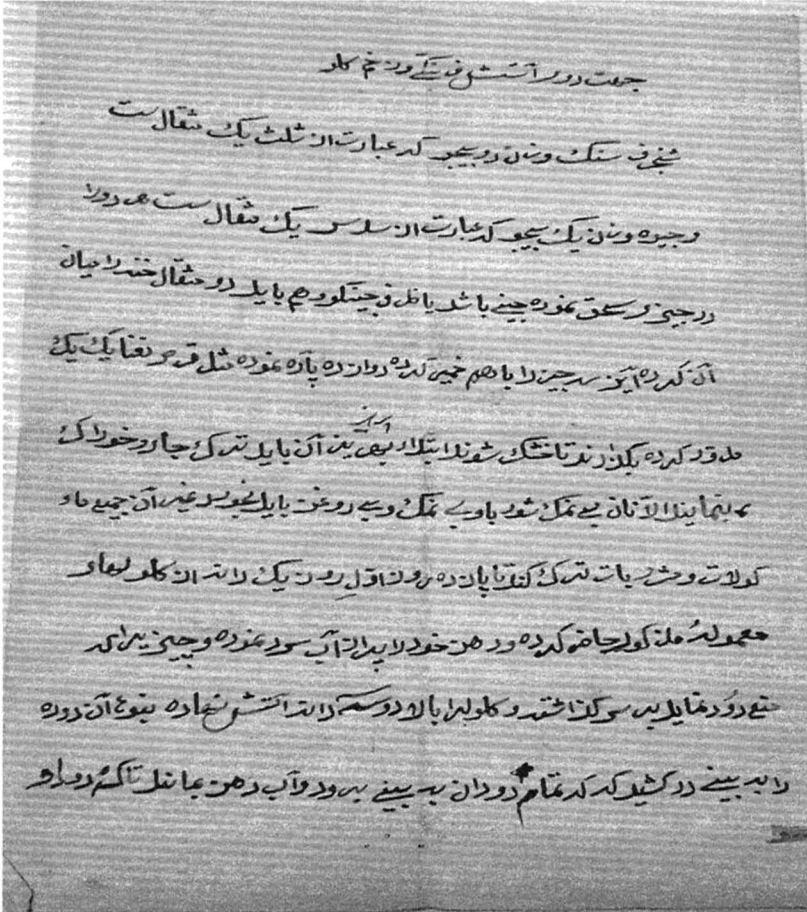 جهت دوا آتشش فرنگی و زخم کلو
شنجرف سنک وزن دو بیجو که عبارت از ثلث یک مثقال است
وجیوه وزن یک بیجو که عبارت از سدس یک مثقال است هر دو را
در چیزی سحق نموده چینی باشد یا ظرف چینکو وهم باید دو مثقال را میان
آن کرده این سه چیز را باهم خمیر کرده دوازده پاره نموده مثل قرص یک یک
کرده بکذارند تا خشک شوند ابتداء آن باید ترک چای وخوراک
الا نان بی نمک شوربا وبی نمک وبی روغن باید بخورد غیر آن جمیع ماء
کولات ومشروبات ترک کند تا پانزده روز اول روز یک دانه از
معموله مذکوله حاضر کرده ودهن خود را پر از آب سرد نموده وچیزی برای
منع دود بر سر کذاشته و را بالا دو سه دانه آتش نهاده بنوعی آن دود
را به بینی در کشید که که تمام دود آن به بینی برود وآب دهن بماند تا که دود او